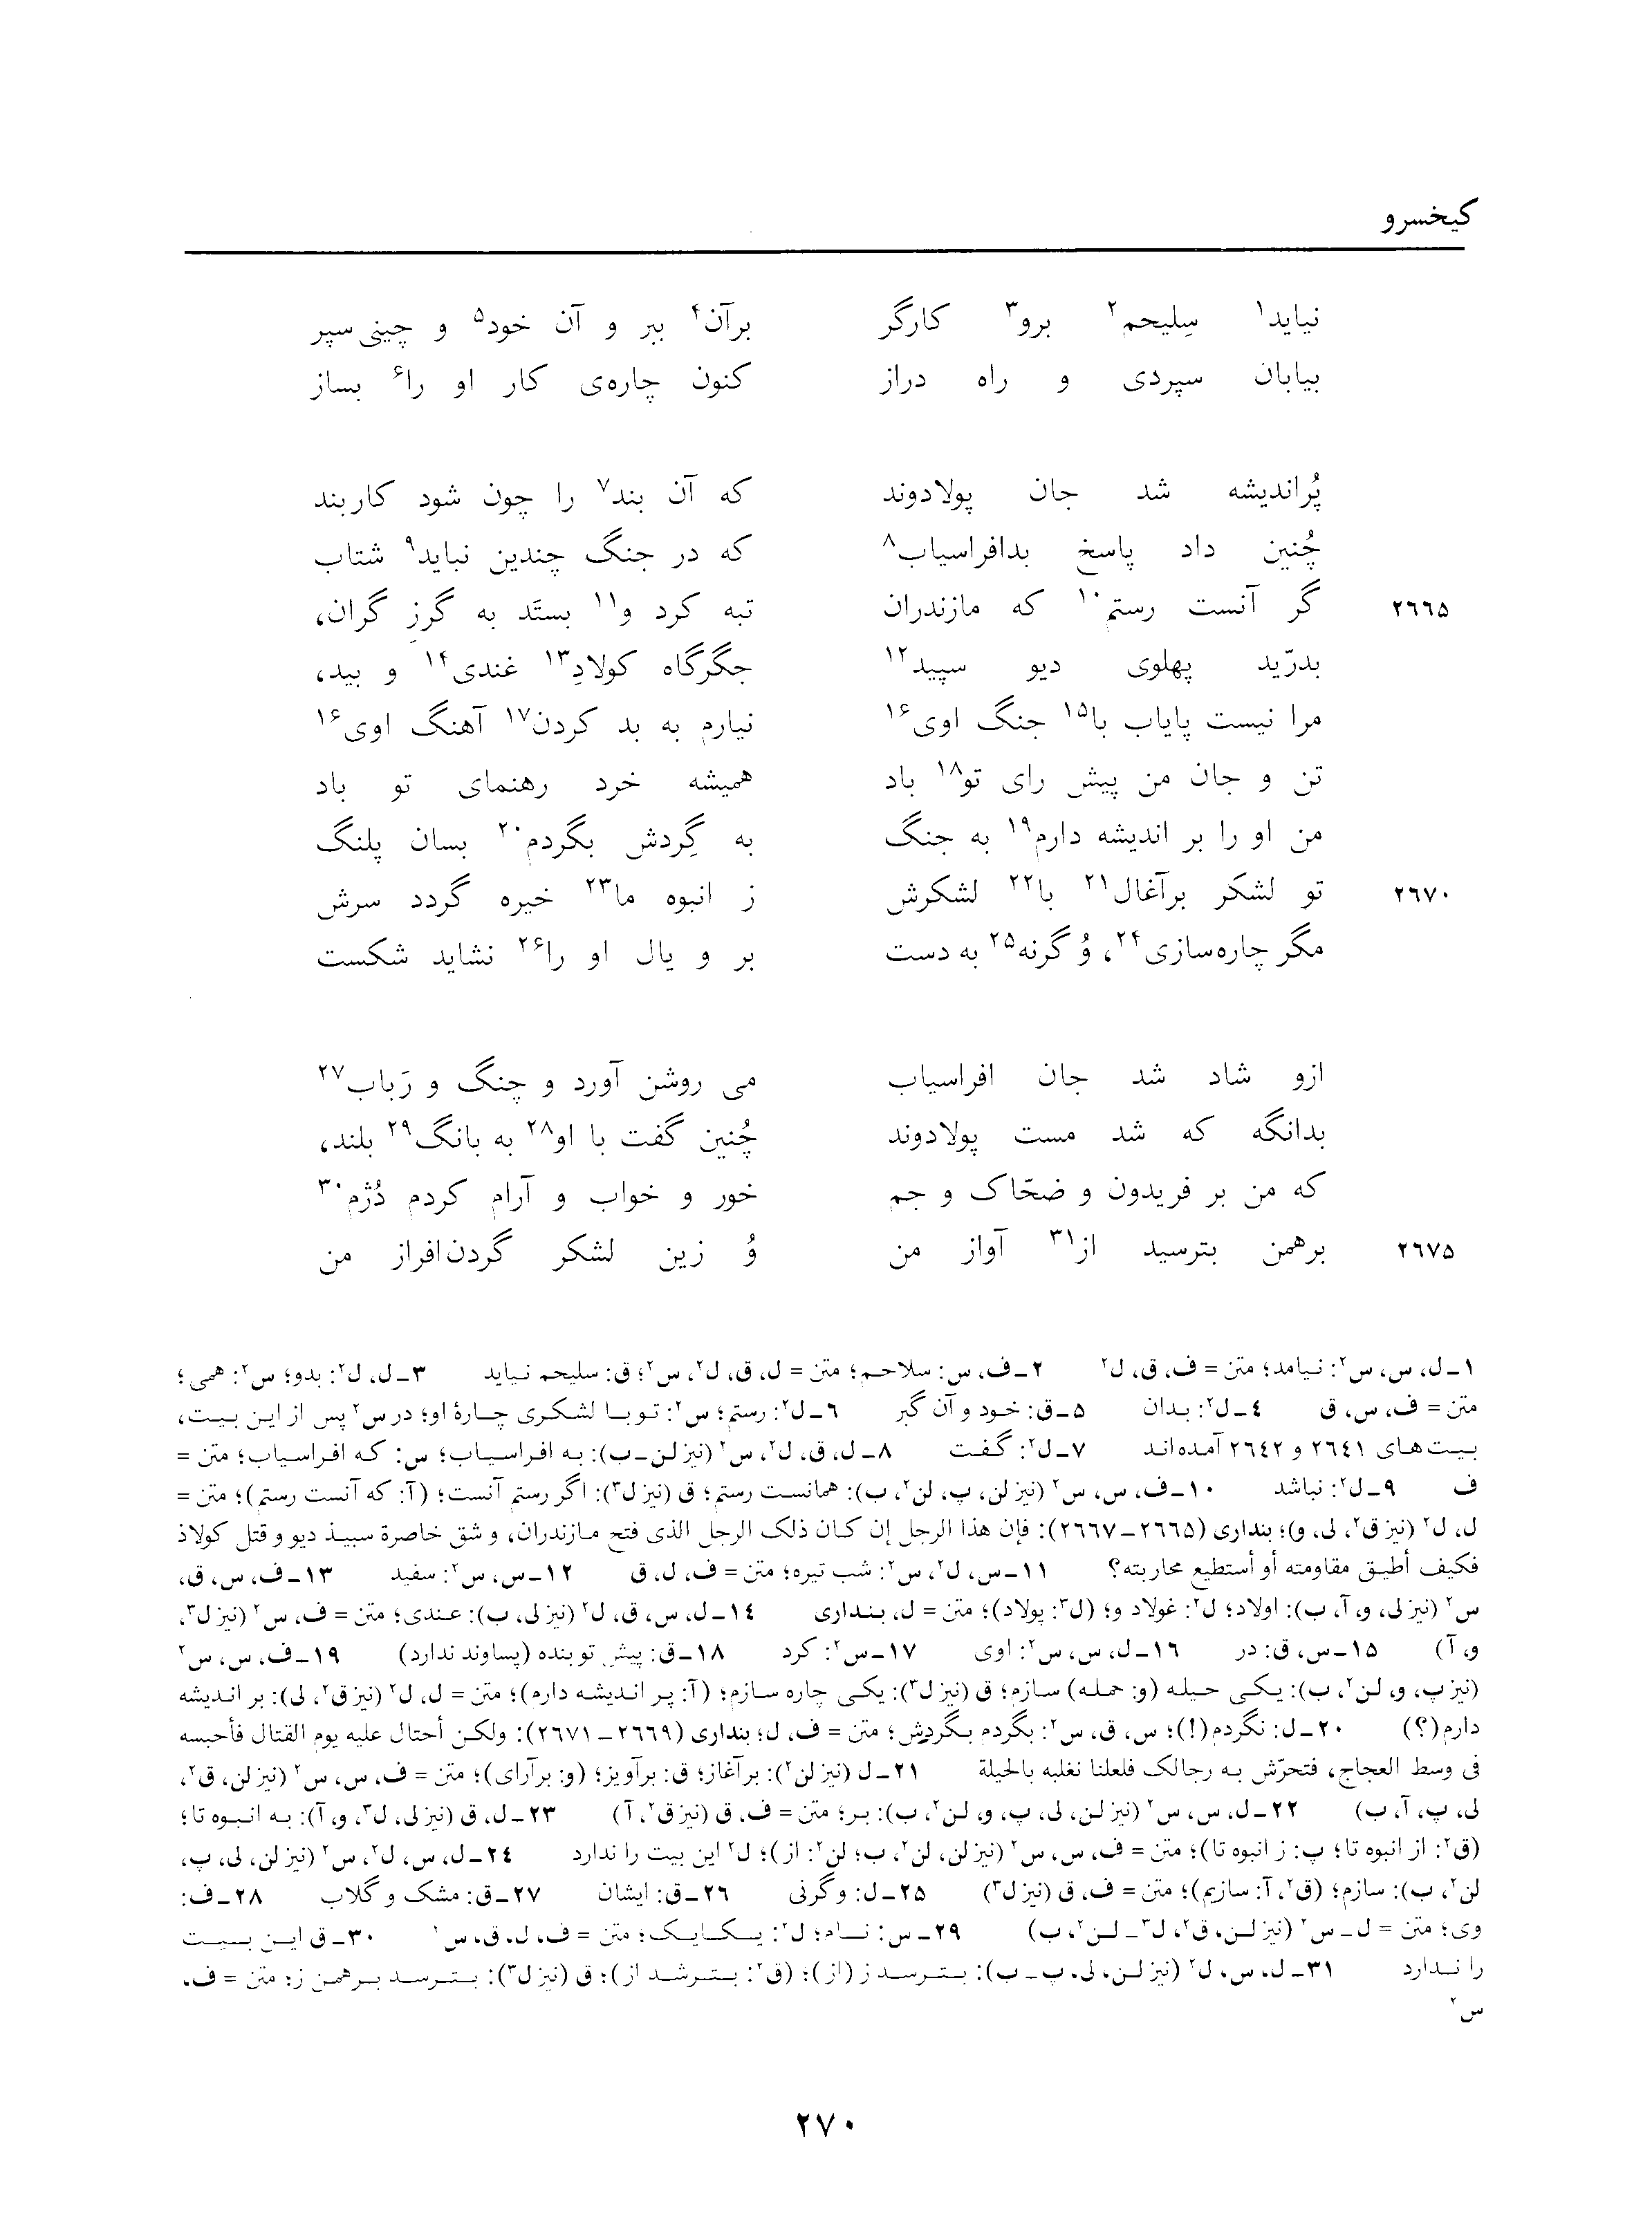 کیخسرو
نیاید۱ سِلیحم۲ برو۳ کارگر برآن۴ ببر و آن خود۵ و چینی سپر
بیابان سپردی و راه دراز کنون چاره‌ی کار او را۶ بساز
پُراندیشه شد جان پولادوند که آن بند۷ را چون شود کاربند
چُنین داد پاسخ بدافراسیاب۸ که در جنگ چندین نباید۹ شتاب
۲۶۶۵ گر آنست رستم۱۰ که مازندران تبه کرد و۱۱ بستَد به گرزِ گران،
بدرّید پهلوی دیو سپید۱۲ جگرگاه کولادِ۱۳ غندی۱۴ و بید،
مرا نیست پایاب با۱۵ جنگ اوی۱۶ نیارم به بد کردن۱۷ آهنگ اوی۱۶
تن و جان من پیش رای تو۱۸ باد همیشه خرد رهنمای تو باد
من او را بر اندیشه دارم۱۹ به جنگ به گِردش بگردم۲۰ بسان پلنگ
۲۶۷۰ تو لشکر برآغال۲۱ با۲۲ لشکرش ز انبوه ما۲۳ خیره گردد سرش
مگر چاره‌سازی۲۴، وُ گرنه۲۵ به دست بر و یال او را۲۶ نشاید شکست
ازو شاد شد جان افراسیاب می روشن آورد و چنگ و رَباب۲۷
بدانگه که شد مست پولادوند چُنین گفت با او۲۸ به بانگ۲۹ بلند،
که من بر فریدون و ضحّاک و جم خور و خواب و آرام کردم دُژم۳۰
۲۶۷۵ برهمن بترسید از۳۱ آواز من وُ زین لشکر گردن‌افراز من
۱ـ ل، س، س۲: نیامد؛ متن = ف، ق، ل۲ ۲ـ ف، س: سلاحم؛ متن = ل، ق، ل۲، س۲؛ ق: سلیحم نیاید ۳ـ ل، ل۲: بدو؛ س۲: همی؛
متن = ف، س، ق ۴ـ ل۲: بدان ۵ـ ق: خود و آن گبر ۶ـ ل۲: رستم؛ س۲: تو با لشکری چارهٔ او؛ در س۲ پس از این بیت،
بیت‌های ۲۶۴۱ و ۲۶۴۲ آمده‌اند ۷ـ ل۲: گفت ۸ـ ل، ق، ل۲، س۲ (نیز لن ـ ب): به افراسیاب؛ س: که افراسیاب؛ متن =
ف ۹ـ ل۲: نباشد ۱۰ـ ف، س، س۲ (نیز لن، پ، لن۲، ب): همانست رستم؛ ق (نیز ل۳): اگر رستم آنست؛ (آ: که آنست رستم)؛ متن =
ل، ل۲ (نیز ق۲، لی، و)؛ بنداری (۲۶۶۵ ـ ۲۶۶۷): فإن هذا الرجل إن کان ذلک الرجل الذی فتح مازندران، و شق خاصرة سبیذ دیو و قتل کولاذ
فکیف أطیق مقاومته أو أستطیع محاربته؟ ۱۱ـ س، ل۲، س۲: شب تیره؛ متن = ف، ل، ق ۱۲ـ س، س۲: سفید ۱۳ـ ف، س، ق،
س۲ (نیز لی، و، آ، ب): اولاد؛ ل۲: غولاد و؛ (ل۳: پولاد)؛ متن = ل، بنداری ۱۴ـ ل، س، ق، ل۲ (نیز لی، ب): عندی؛ متن = ف، س۲ (نیز ل۳،
و، آ) ۱۵ـ س، ق: در ۱۶ـ ل، س، س۲: اوی ۱۷ـ س۲: کرد ۱۸ـ ق: پیش تو بنده (پساوند ندارد) ۱۹ـ ف، س، س۲
(نیز پ، و، لن۲، ب): یکی حیله (و: حمله) سازم؛ ق (نیز ل۳): یکی چاره سازم؛ (آ: پر اندیشه دارم)؛ متن = ل، ل۲ (نیز ق۲، لی): بر اندیشه
دارم(؟) ۲۰ـ ل: نگردم(!)؛ س، ق، س۲: بگردم بگردش؛ متن = ف، ل؛ بنداری (۲۶۶۹ ـ ۲۶۷۱): ولکن أحتال علیه یوم القتال فأحبسه
فی وسط العجاج، فتحرّش به رجالک فلعلنا نغلبه بالحیلة ۲۱ـ ل (نیز لن۲): برآغاز؛ ق: برآویز؛ (و: برآرای)؛ متن = ف، س، س۲ (نیز لن، ق۲،
لی، پ، آ، ب) ۲۲ـ ل، س، س۲ (نیز لن، لی، پ، و، لن۲، ب): بر؛ متن = ف، ق (نیز ق۲، آ) ۲۳ـ ل، ق (نیز لی، ل۳، و، آ): به انبوه تا؛
(ق۲: از انبوه تا؛ پ: ز انبوه تا)؛ متن = ف، س، س۲ (نیز لن، لن۲، ب؛ لن۲: از)؛ ل۲ این بیت را ندارد ۲۴ـ ل، س، ل۲، س۲ (نیز لن، لی، پ،
لن۲، ب): سازم؛ (ق۲، آ: سازیم)؛ متن = ف، ق (نیز ل۳) ۲۵ـ ل: وگرنی ۲۶ـ ق: ایشان ۲۷ـ ق: مشک و گلاب ۲۸ـ ف:
وی؛ متن = ل ـ س۲ (نیز لن، ق۲، ل۳ ـ لن۲، ب) ۲۹ـ س: نام؛ ل۲: یکایک؛ متن = ف، ل، ق، س۲ ۳۰ـ ق این بیت
را ندارد ۳۱ـ ل، س، ل۲ (نیز لن، لی، پ ـ ب): بترسد ز (از)؛ (ق۲: بترشد از)؛ ق (نیز ل۳): بترسد برهمن ز؛ متن = ف،
س۲
۲۷۰